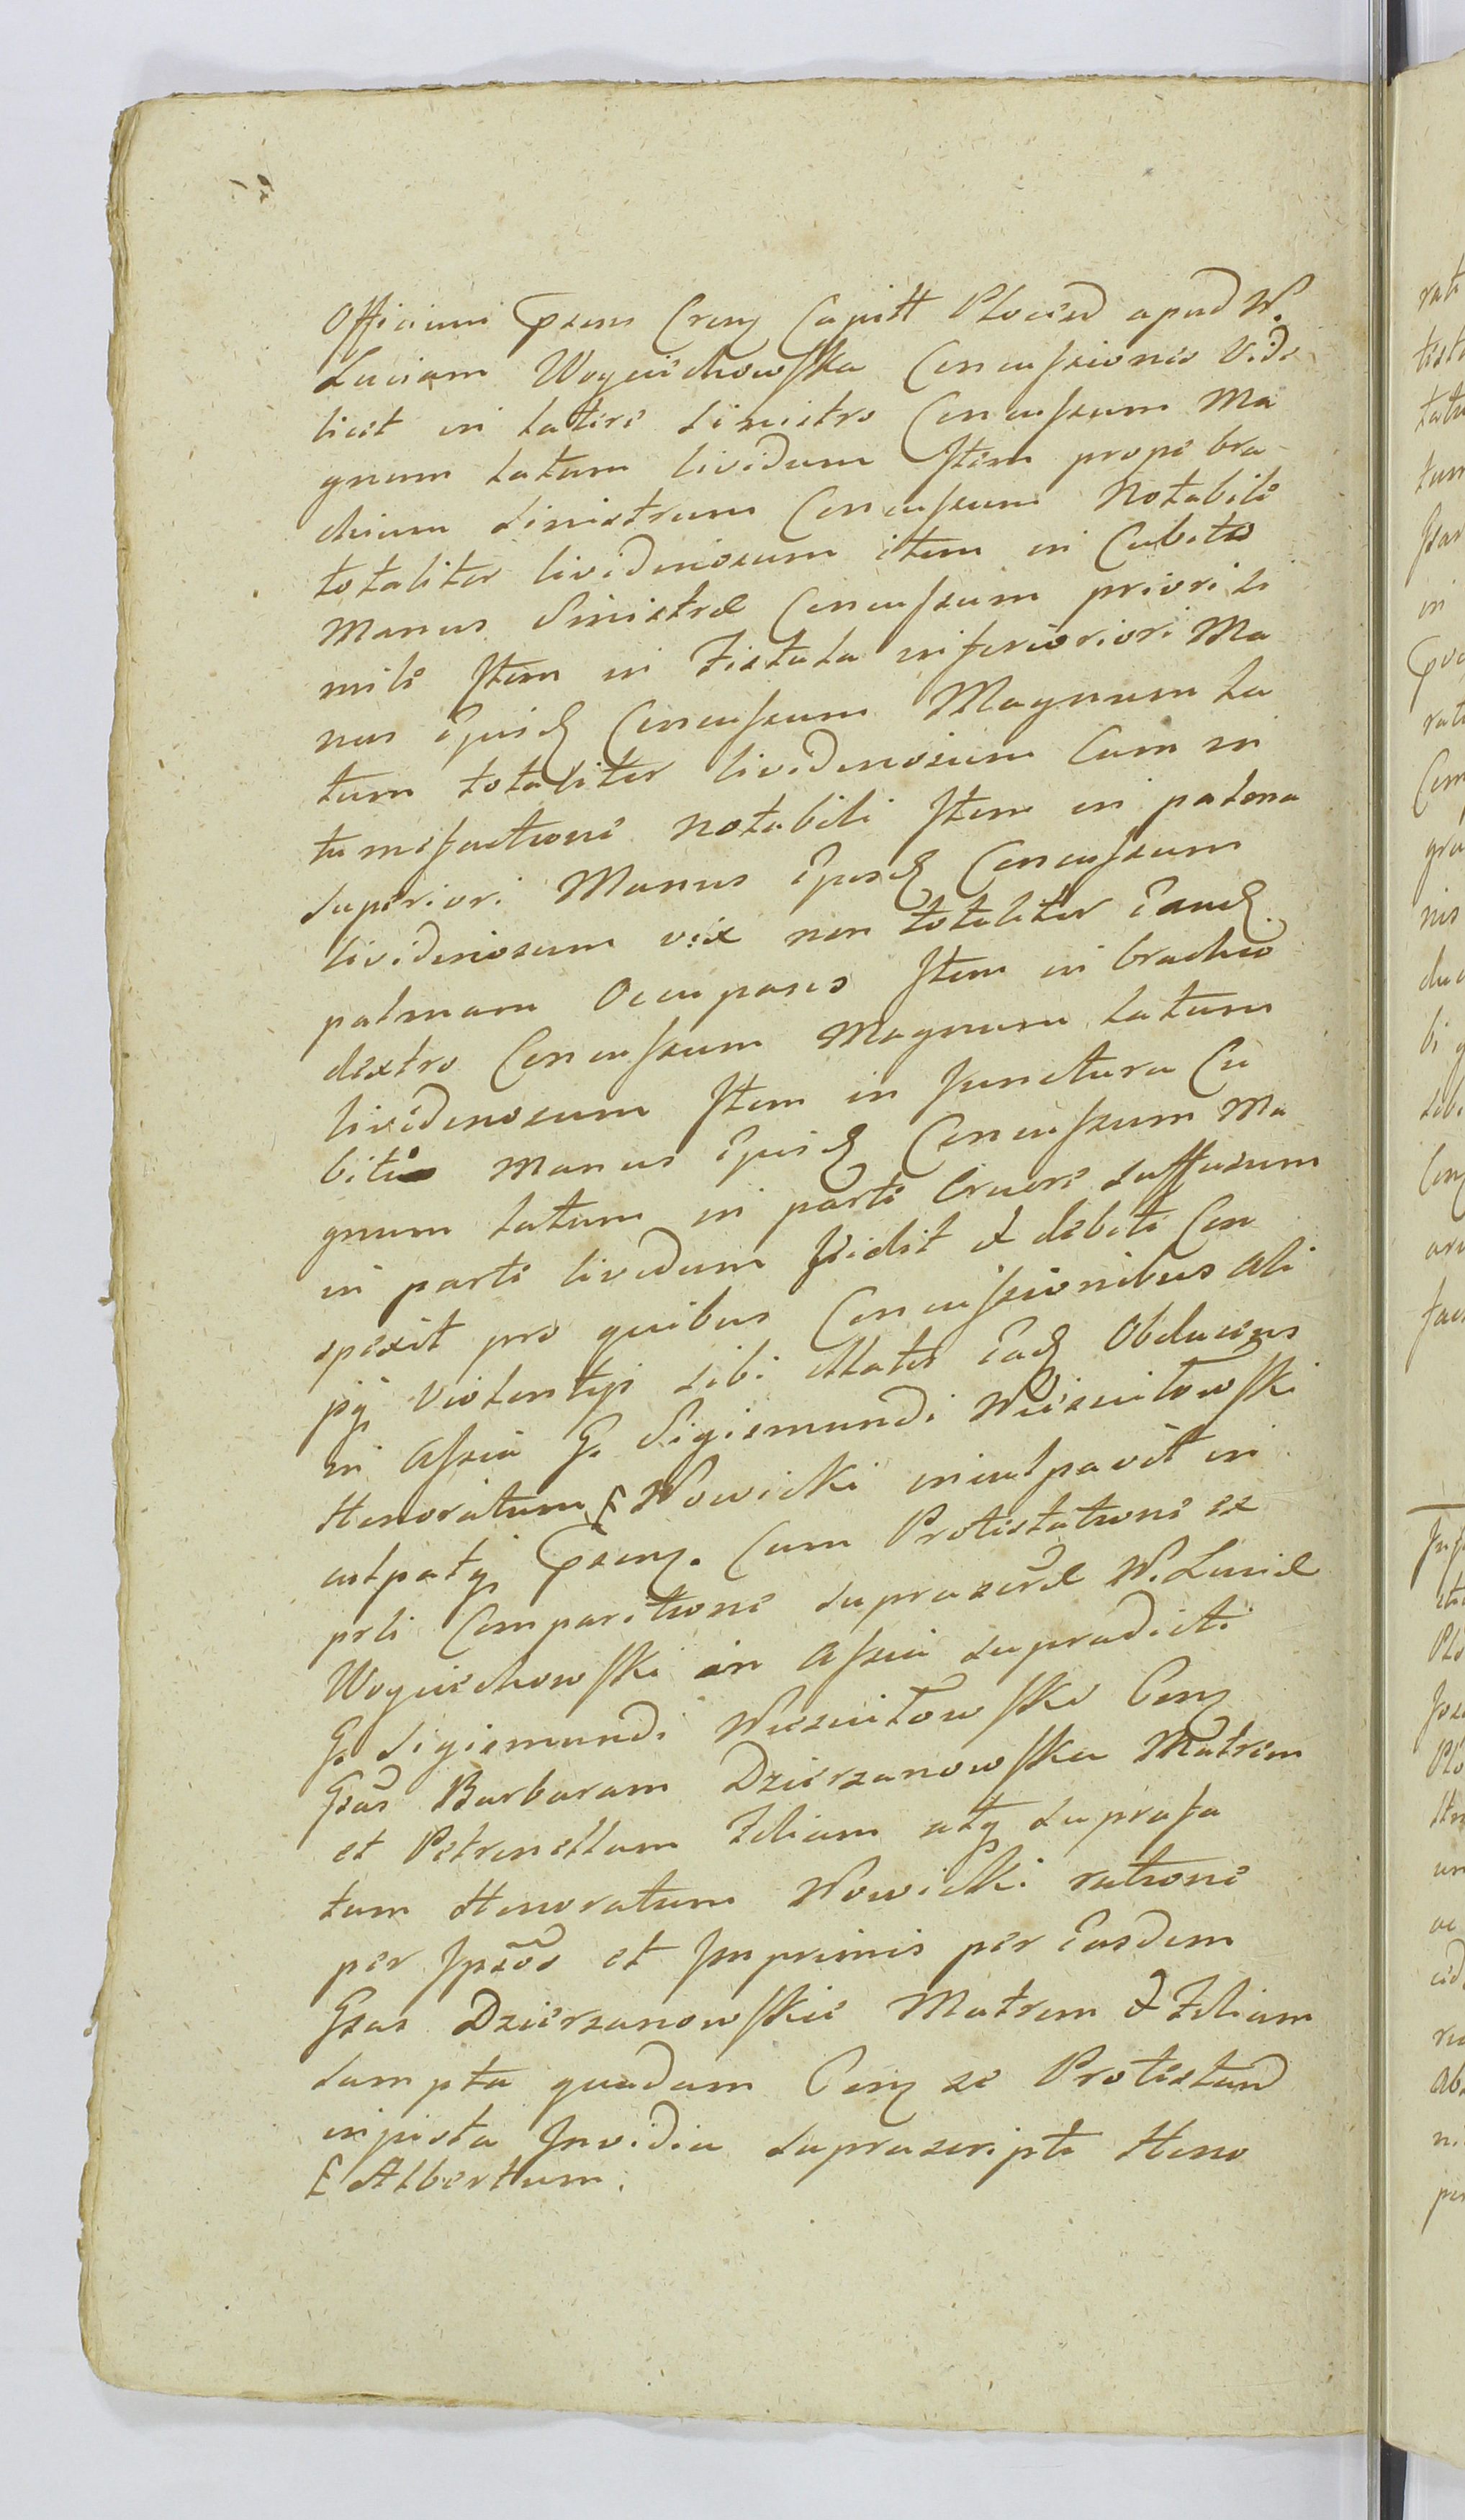 Officium Præns Cren Capitt Plocen apud W.
Luciam Woyciechowska Concussiones Vide
licet in latere sinistro Concussum Ma
gnum latum lividum Item prope bra-
chium sinistrum Concussum Notabile
totaliter lividinosum item in Cubito
Manus Sinistræ Concussum priori si
mile Item in Fistula inferioriori Ma
nus Ejusd Concussum Magnum la
tum totaliter lividinosum Cum in
tumefactione notabili Item in palma
superiori Manus Ejusd Concussum
lividinosum vix non totaliter Eand
palmam Occupans Item in brachio
dextro Concussum Magnum latum
lividinosum Item in Junctura Cu
biti Manus Ejusd Concussum Ma
gnum latum in parte Cruore suffusum
in parte lividum Vidit & debite Con
spexit pro quibus Concussionibus ali
js violentijs sibi illatis Ead Obducens
in Assia G. Sigismundi Wiescitowski
Honoratum £ Nowicki inculpavit in
culpatq Præn. Cum Protestatione ex
prli Comparitione suprascræ W. Luciæ
Woyciechowski in Assia supradicti
G. Sigismundi Wiescitowski Con
Gsas Barbaram Dzierzanowska Matrem
et Petronellam Filiam atq suprafa
tum Honoratum Nowicki ratione
per Ipsos et Inprimis per Easdem
Gsas Dzierzanowskie Matrem & Filiam
sumpta quadam Con se Protestan
injusta Invidia suprascripte Hono
£ Albertum.